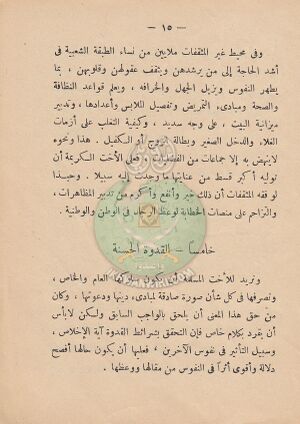 — ١٥ —
وفى محيط غير المثقفات ملايين من نساء الطبقة الشعبية فى
أشد الحاجة إلى من يرشدهن ويثقف عقولهن وقلوبهن، بما
يطهر النفوس ويزيل الجهل والخرافة، ويعلم قواعد النظافة
والصحة ومبادىء التمريض وتفصيل الملابس وأعدادها، وتدبير
ميزانية البيت، على وجه سديد، وكيفية التغلب على أزمات
الغلاء والدخل الصغير وبطالة الزوج أو الكفيل. هذا ونحوه
لاينهض به إلا جماعات من الفضليات، فعلى الأخت المسلمة أن
توليه أكبر قسط من عنايتها ما وجدت إليه سبيلا. وحبذا
لو فقه المثقفات أن ذلك خير وأنفع وأكرم من تدبير المظاهرات،
والتزاحم على منصات الخطابة لوعظ الرجال فى الوطن والوطنية.
خامساً — القدوة الحسنة
ونريد للأخت المسلمة أن يكون سلوكها العام والخاص،
وتصرفها فى كل شأن صورة صادقة لمبادىء دينها ودعوتها، وكان
من حق هذا المعنى أن يلحق بالواجب السابق ولكن لابأس
أن يفرد بكلام خاص فإن التحقق بشرائط القدوة آية الاخلاص،
وسبيل التأثير فى نفوس الآخرين، فعليها أن يكون حالها أفصح
دلالة وأقوى أثراً فى النفوس من مقالها ووعظها.